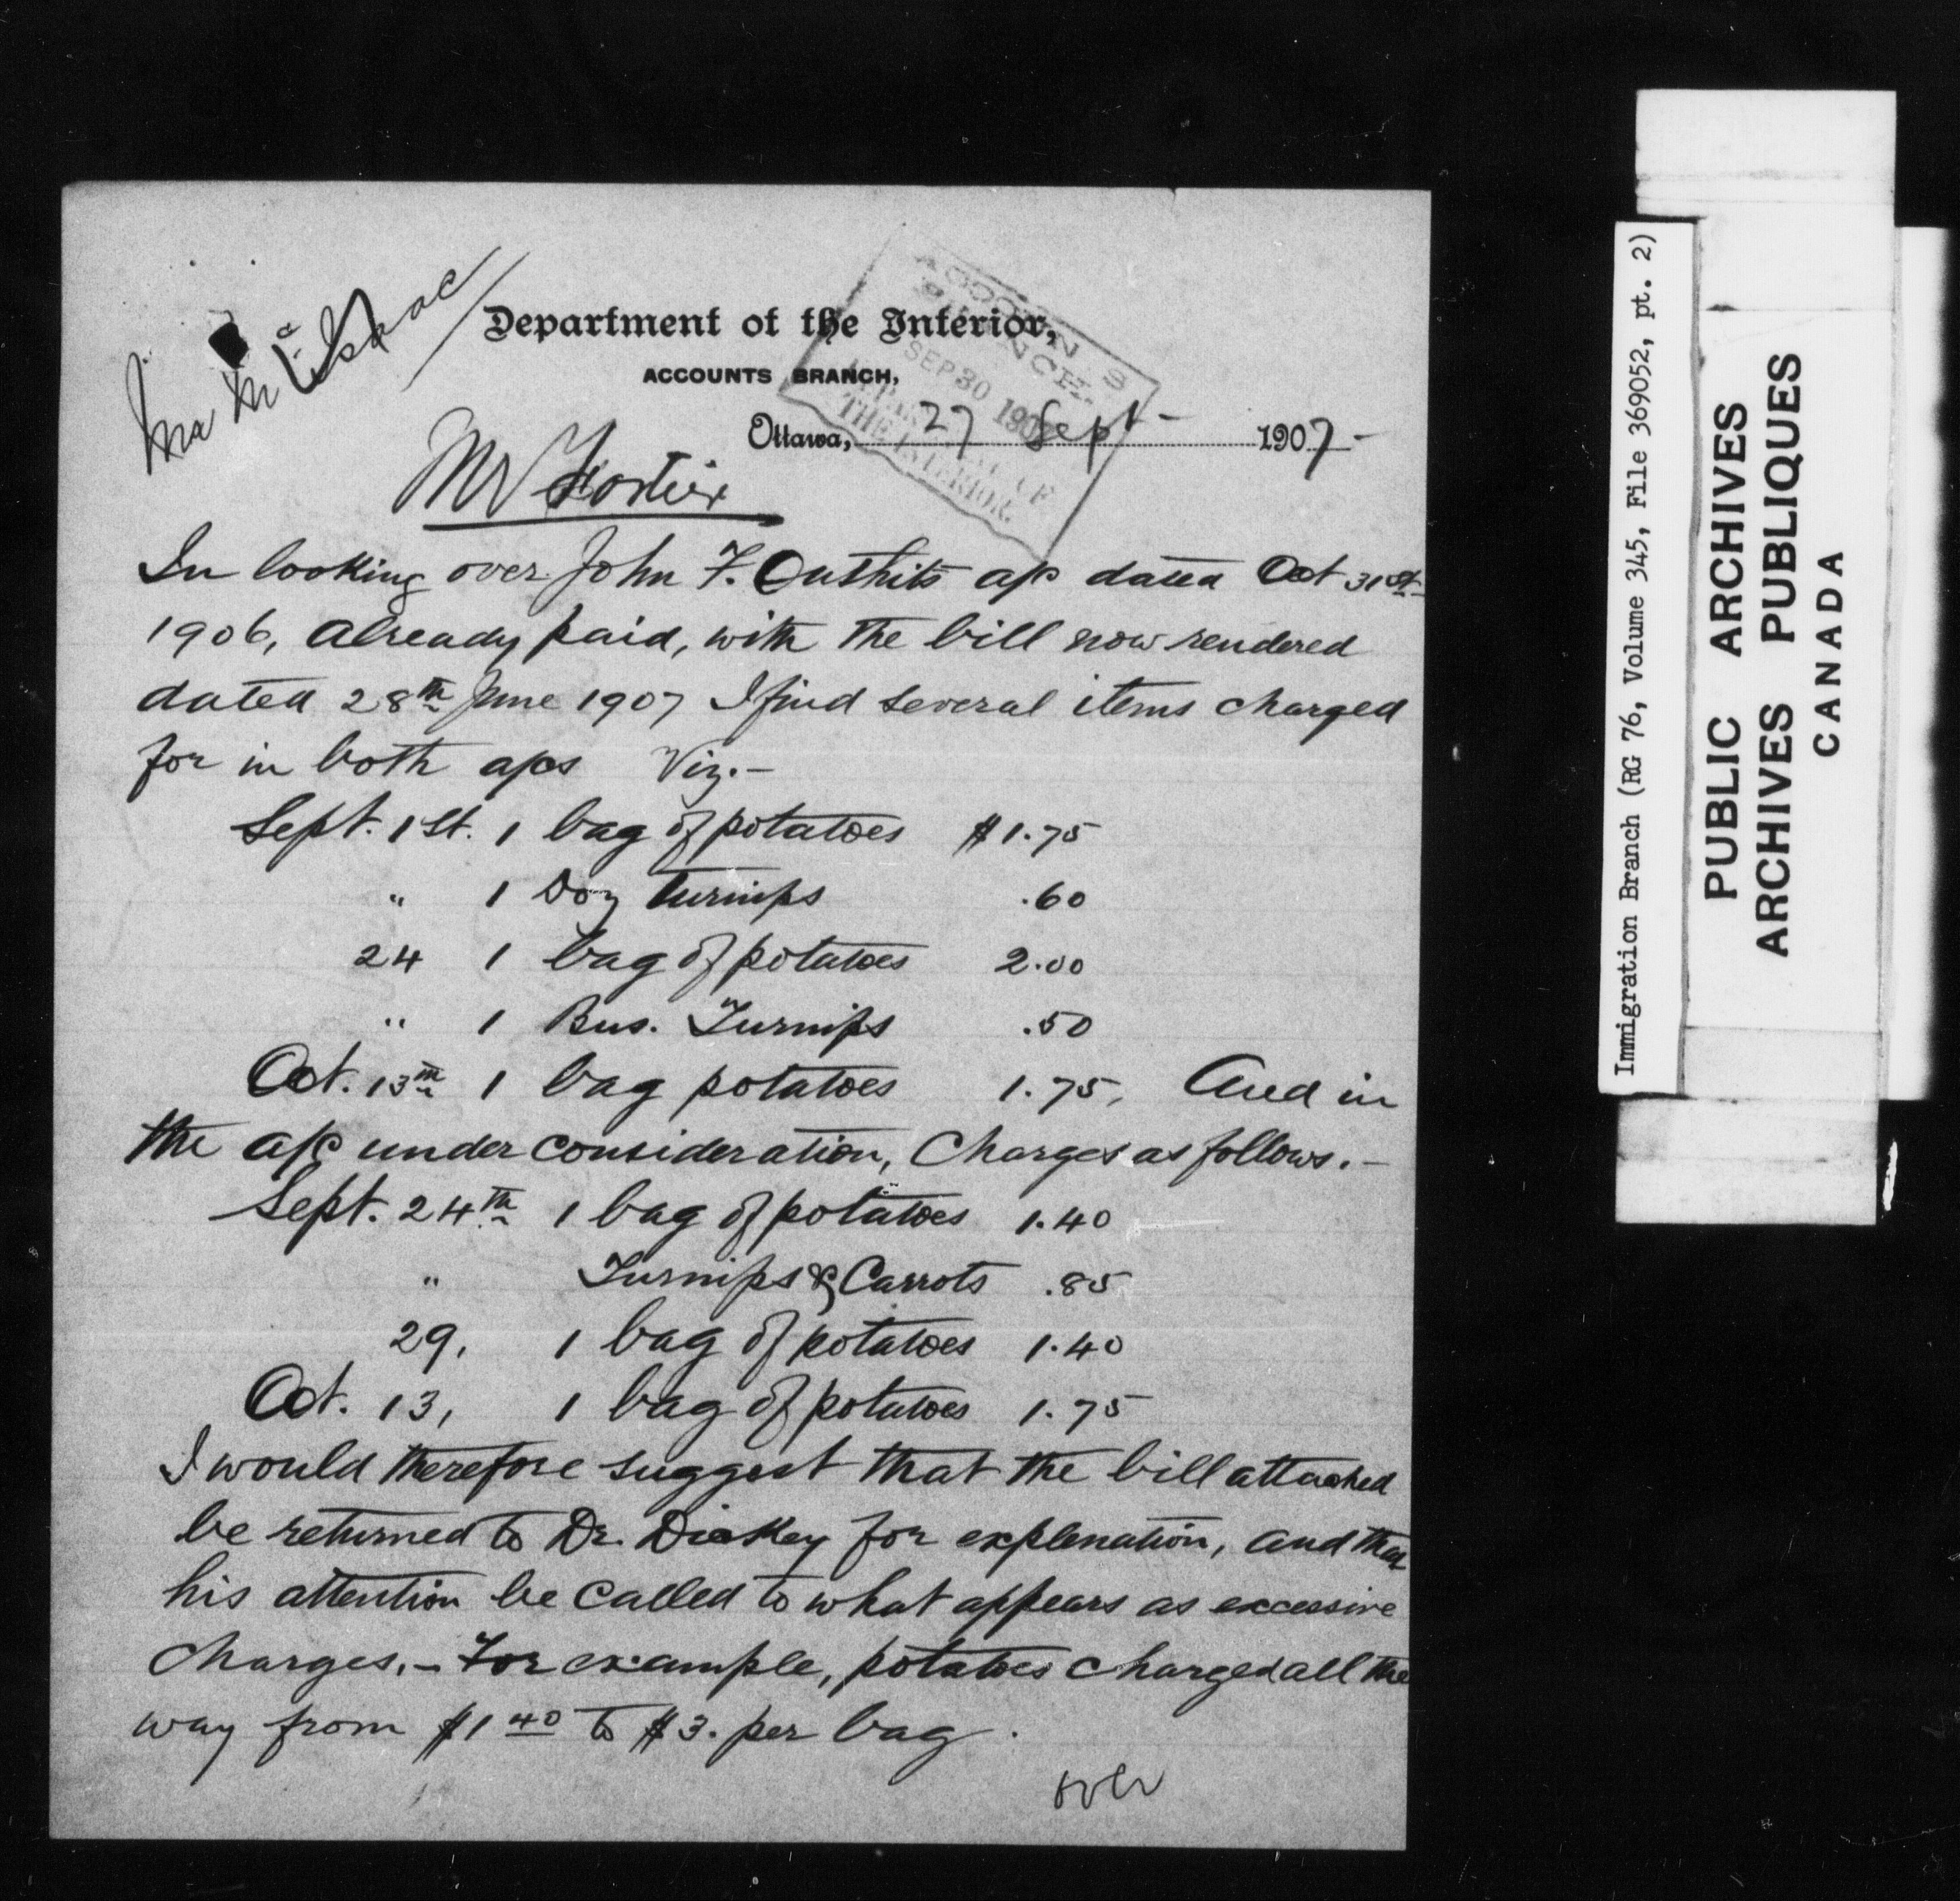 Department of the Interior,
ACCOUNTS BRANCH,
ACCOUNTS
BRANCH
SEP 30 1907
THE INTERIOR.
Ottawa, 27 Sept - 1907-
Mr Fortier
In looking over John F. Outhits a/c dated Oct 31st
1906, already paid, with the bill now rendered
dated 28th June 1907 I find several items charged
for in both a/cs Viz.-
Sept. 1st. 1 bag of potatoes $1.75
" 1 Doz turnips .60
24 1 bag of potatoes 2.00
" 1 Bus. Turnips .50
Oct. 13th 1 bag potatoes 1.75, And in
the a/c under consideration, Charges as follows.-
Sept. 24th 1 bag of potatoes 1.40
" Turnips & Carrots .85
29, 1 bag of potatoes 1.40
Oct. 13, 1 bag of potatoes 1.75
I would therefore suggest that the bill attached
be returned to Dr. Dickey for explenation, and that
his attention be called to what appears as excessive
charges.- For example, potatoes charged all the
way from $1 40 to $3. per bag.
over
Immigration Branch (RG 76, Volume 345, File 369052, pt. 2)
PUBLIC ARCHIVES
ARCHIVES PUBLIQUES
CANADA